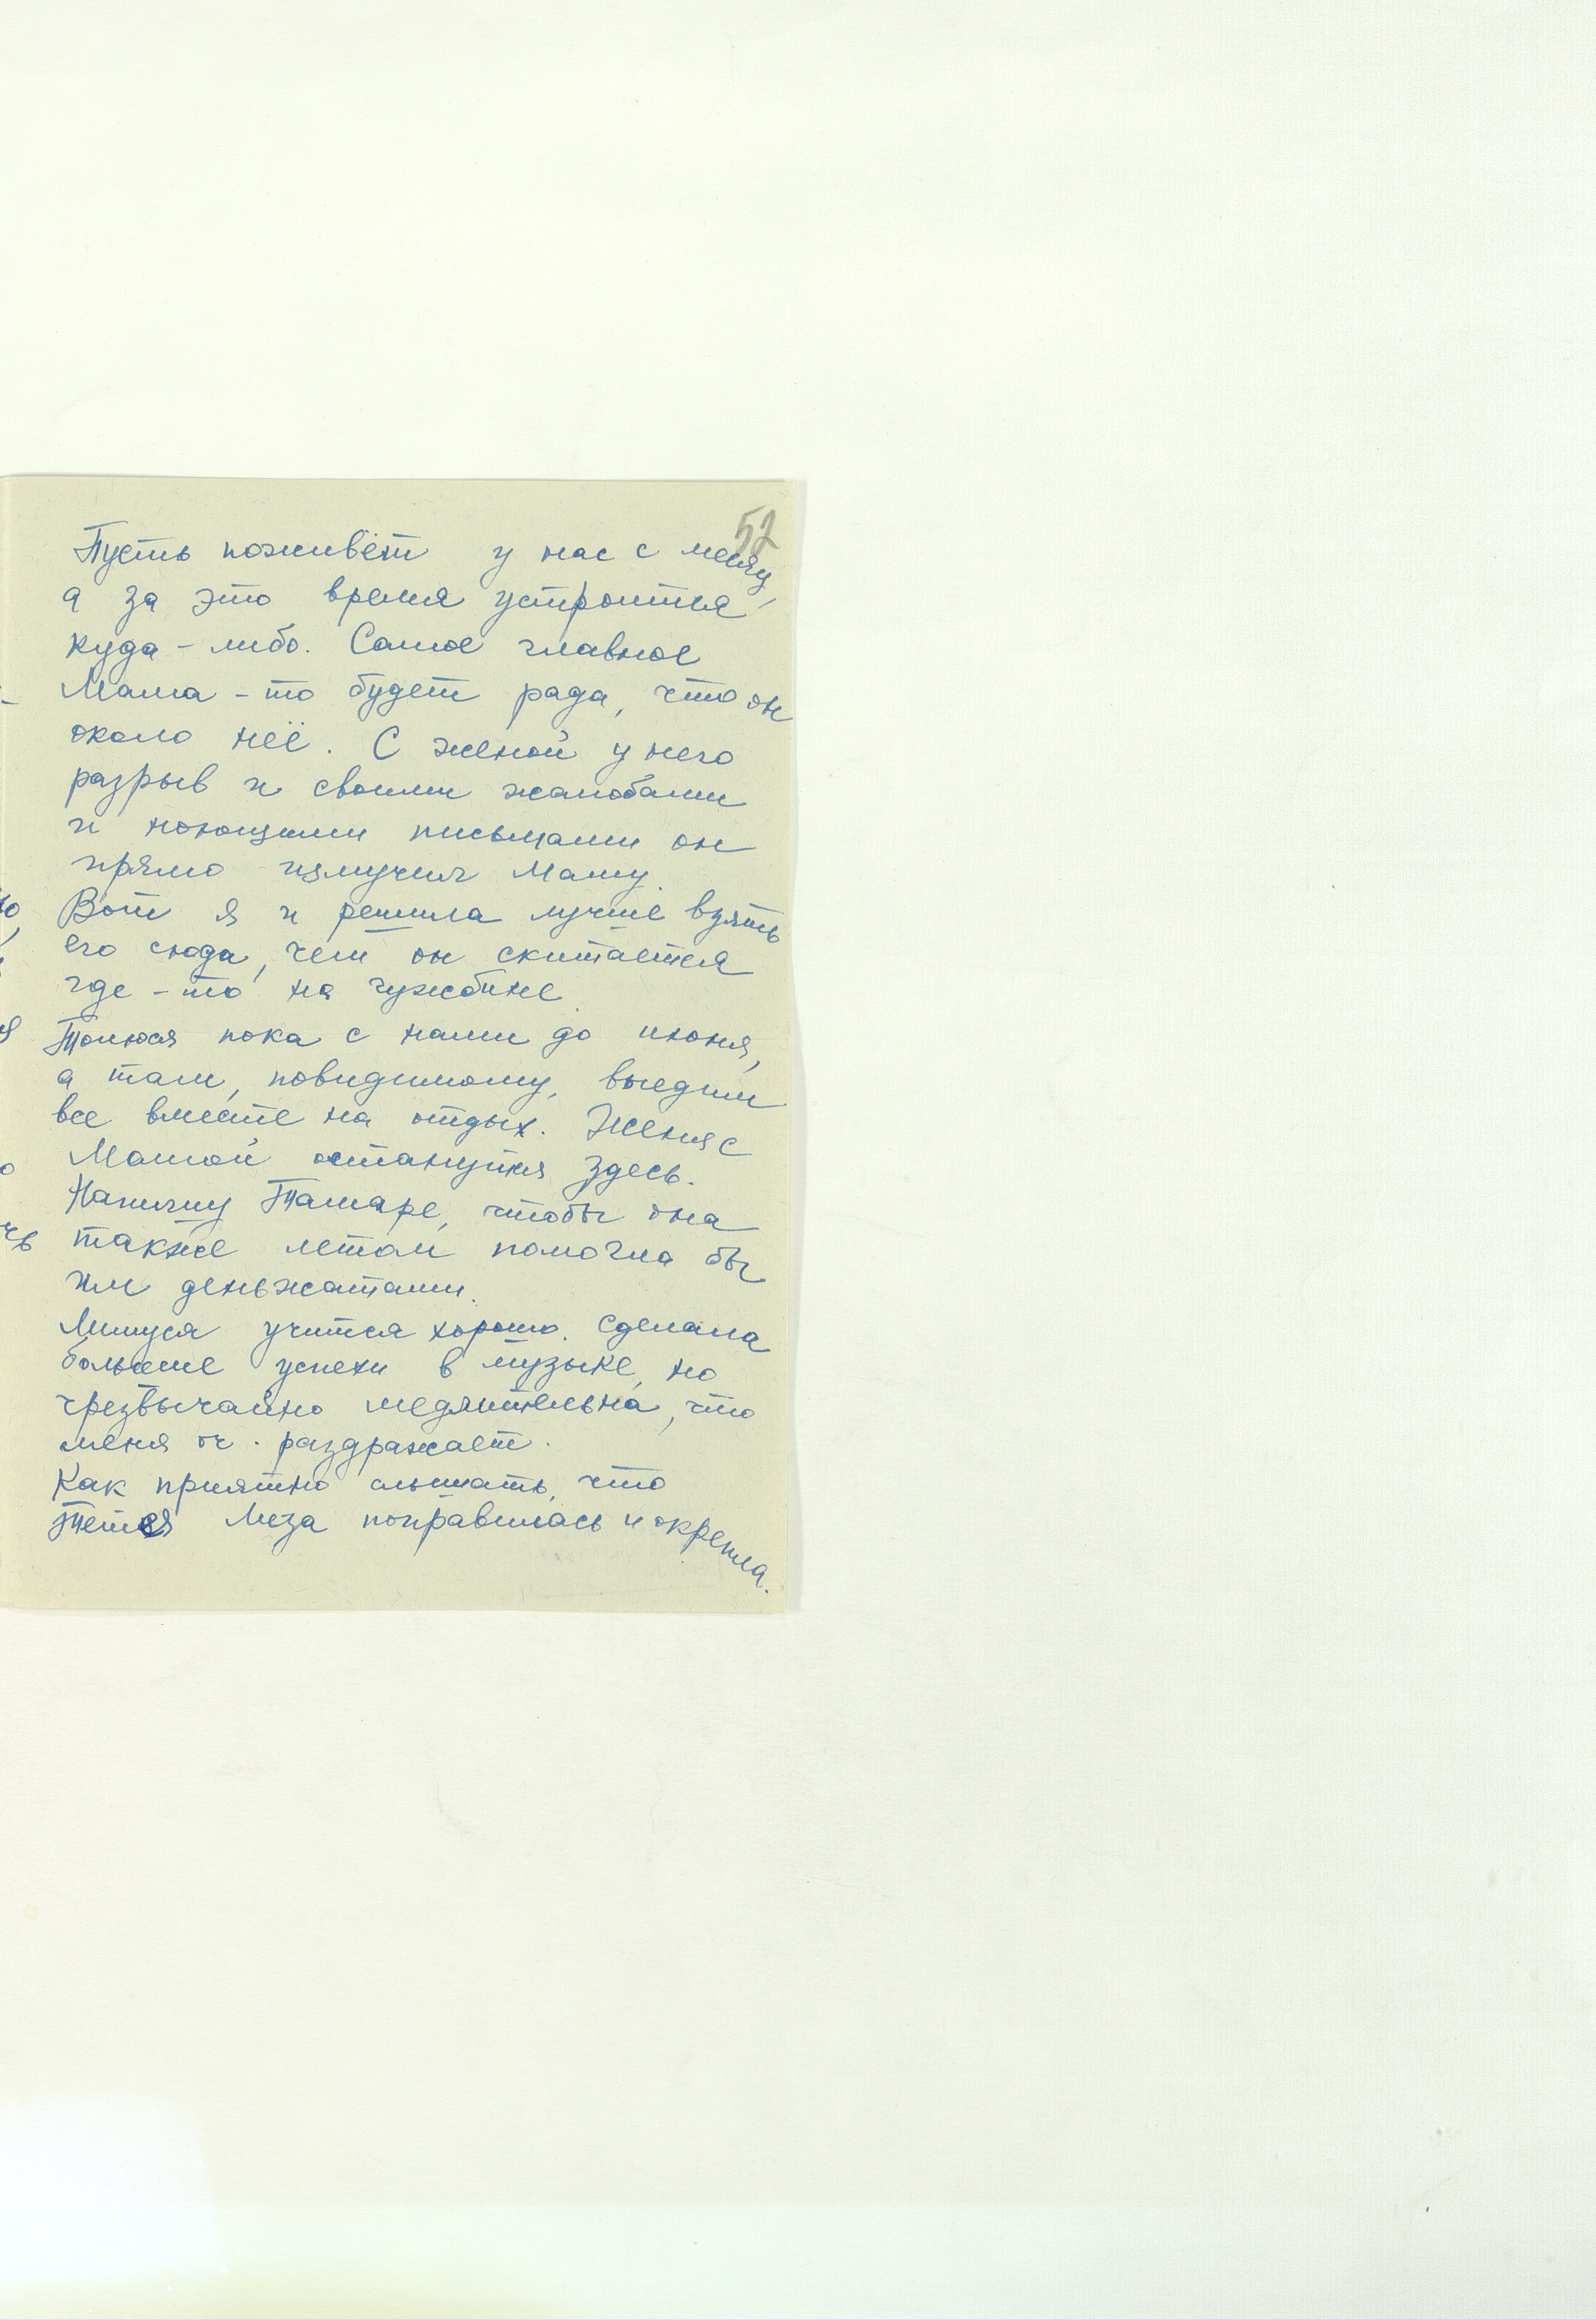 52
Пусть поживёт у нас с месяц,
а за это время устроится
куда-либо. Самое главное
Мама-то будет рада, что он
около неё. С женой у него
разрыв и своими жалобами
и ноющими письмами он
прямо измучил Маму.
Вот я и решила лучше взять
его сюда, чем он скитается
где-то на чужбине.
Толюся пока с нами до июня,
а там, повидимому, выедим
все вместе на отдых. Женя с
Мамой останутся здесь.
Напишу Тамаре, чтобы она
также летом помогла бы
им деньжатами.
Лимуся учится хорошо. Сделала
большие успехи в музыке, но
чрезвычайно медлительна, что
меня оч. раздражает.
Как приятно слышать, что
Тетя Лиза поправилась и окрепла.